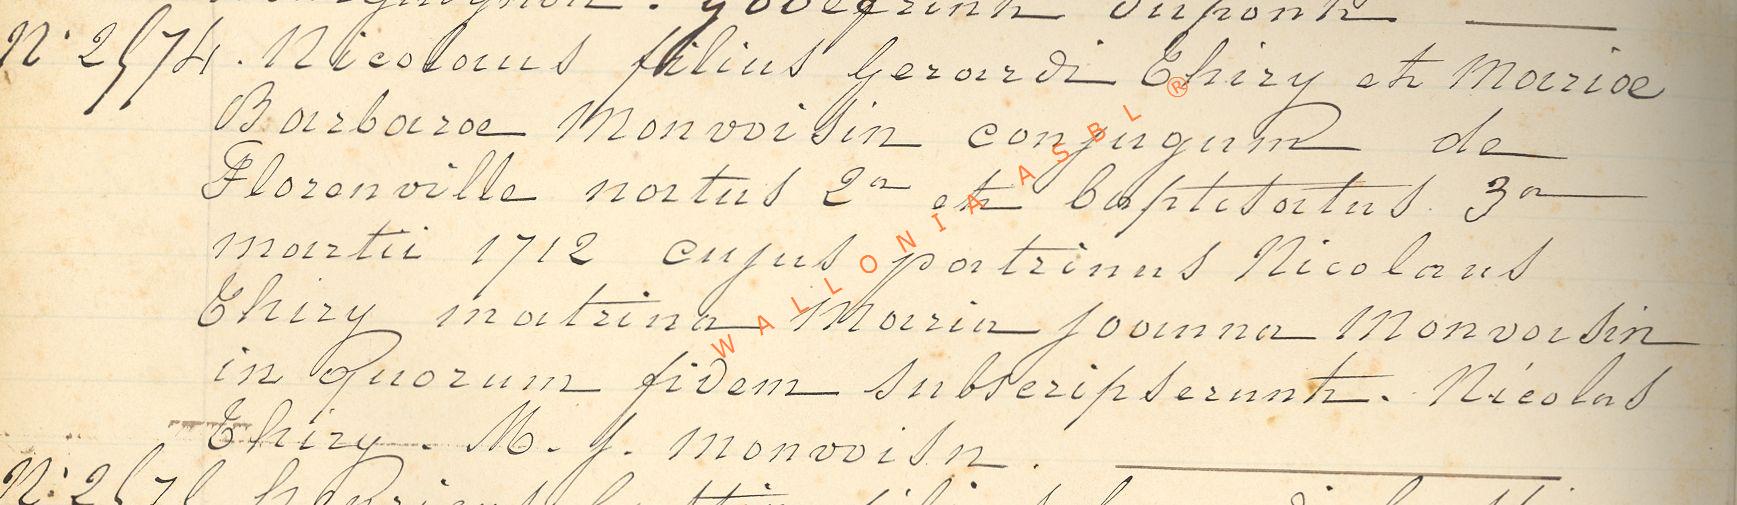 Godefrint Dupont.
N° 2574. Nicolaus filius Gerardi Thiry et Mariae
Barbarae Monvoisin conjugum de
Florenville natus 2a et baptisatus 3a
martii 1712 cujus patrinus Nicolaus
Thiry matrina Maria Joanna Monvoisin
in quorum fidem subscripserunt. Nicolas
Thiry. M. J. monvoisn.
WALLONIA ASBL ®